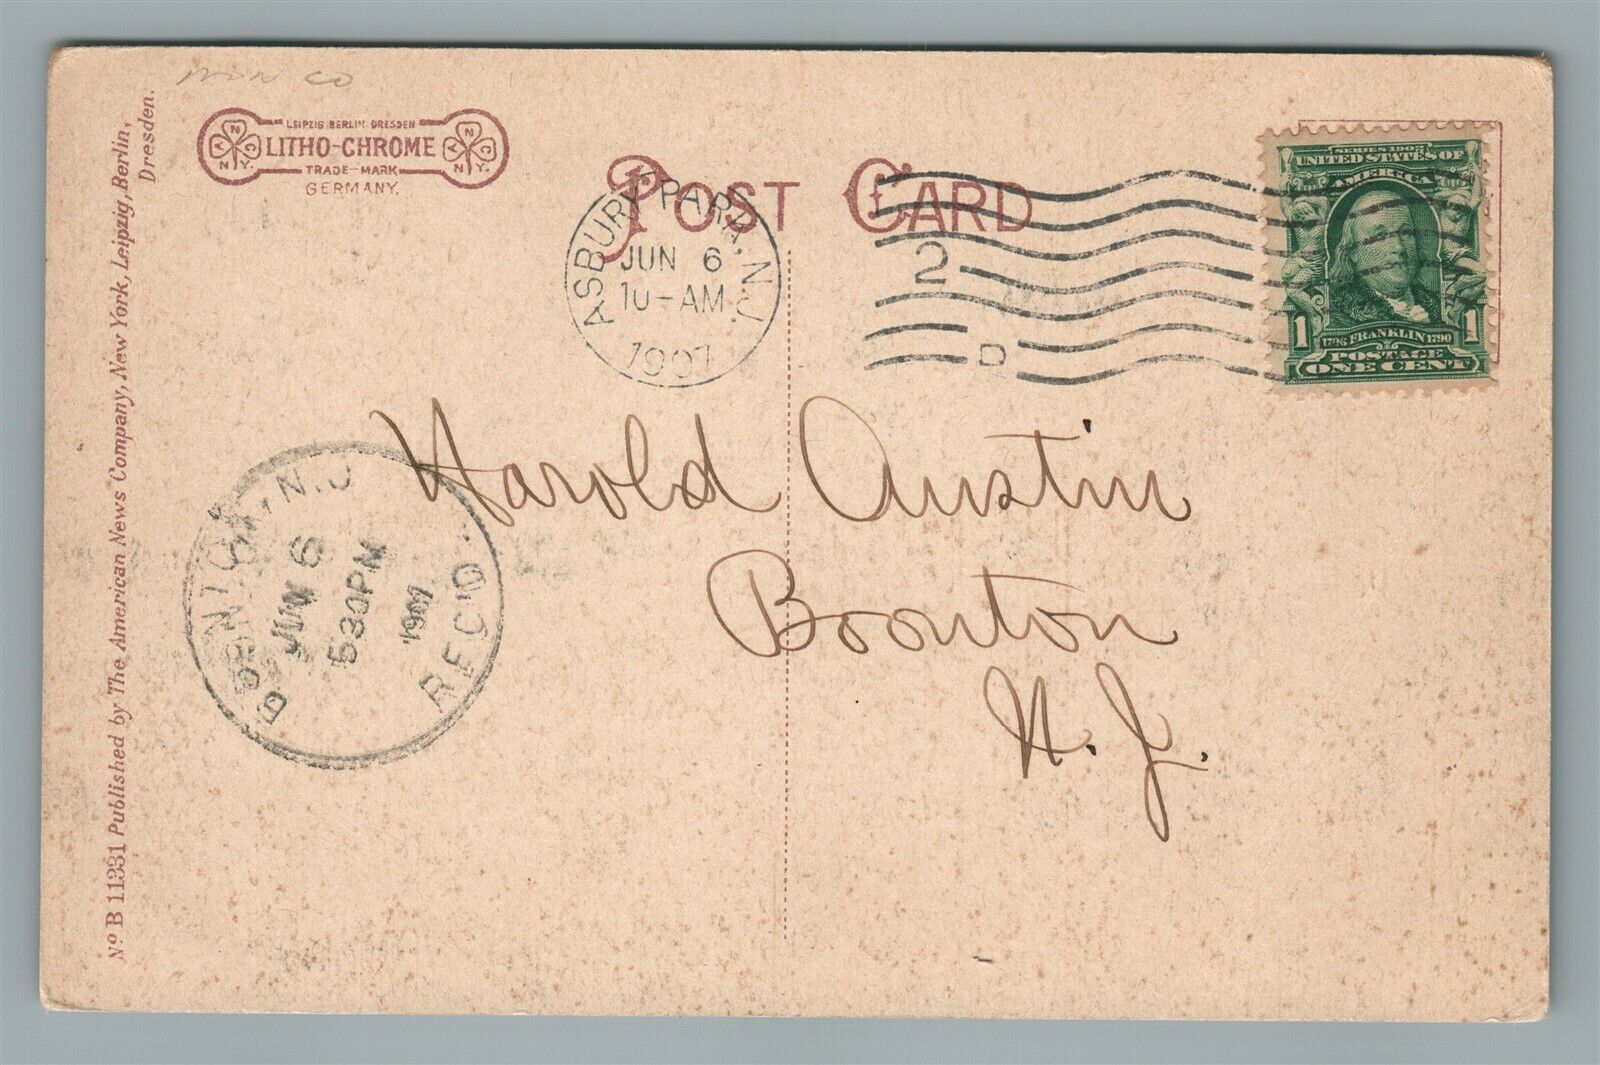 mon co
LEIPZIG BERLIN DRESDEN
LITHO-CHROME
TRADE-MARK
GERMANY.
POST CARD
ASBURY PARK, N.J.
JUN 6
10-AM
1907
2
D
SERIES 1902
UNITED STATES OF
AMERICA
1706 FRANKLIN 1790
1 1
POSTAGE
ONE CENT
Harold Austin
Boonton
N. J.
N.J.
JUN 6
530PM
1907
REC'D.
Nº B 11331 Published by The American News Company, New York, Leipzig, Berlin,
Dresden.